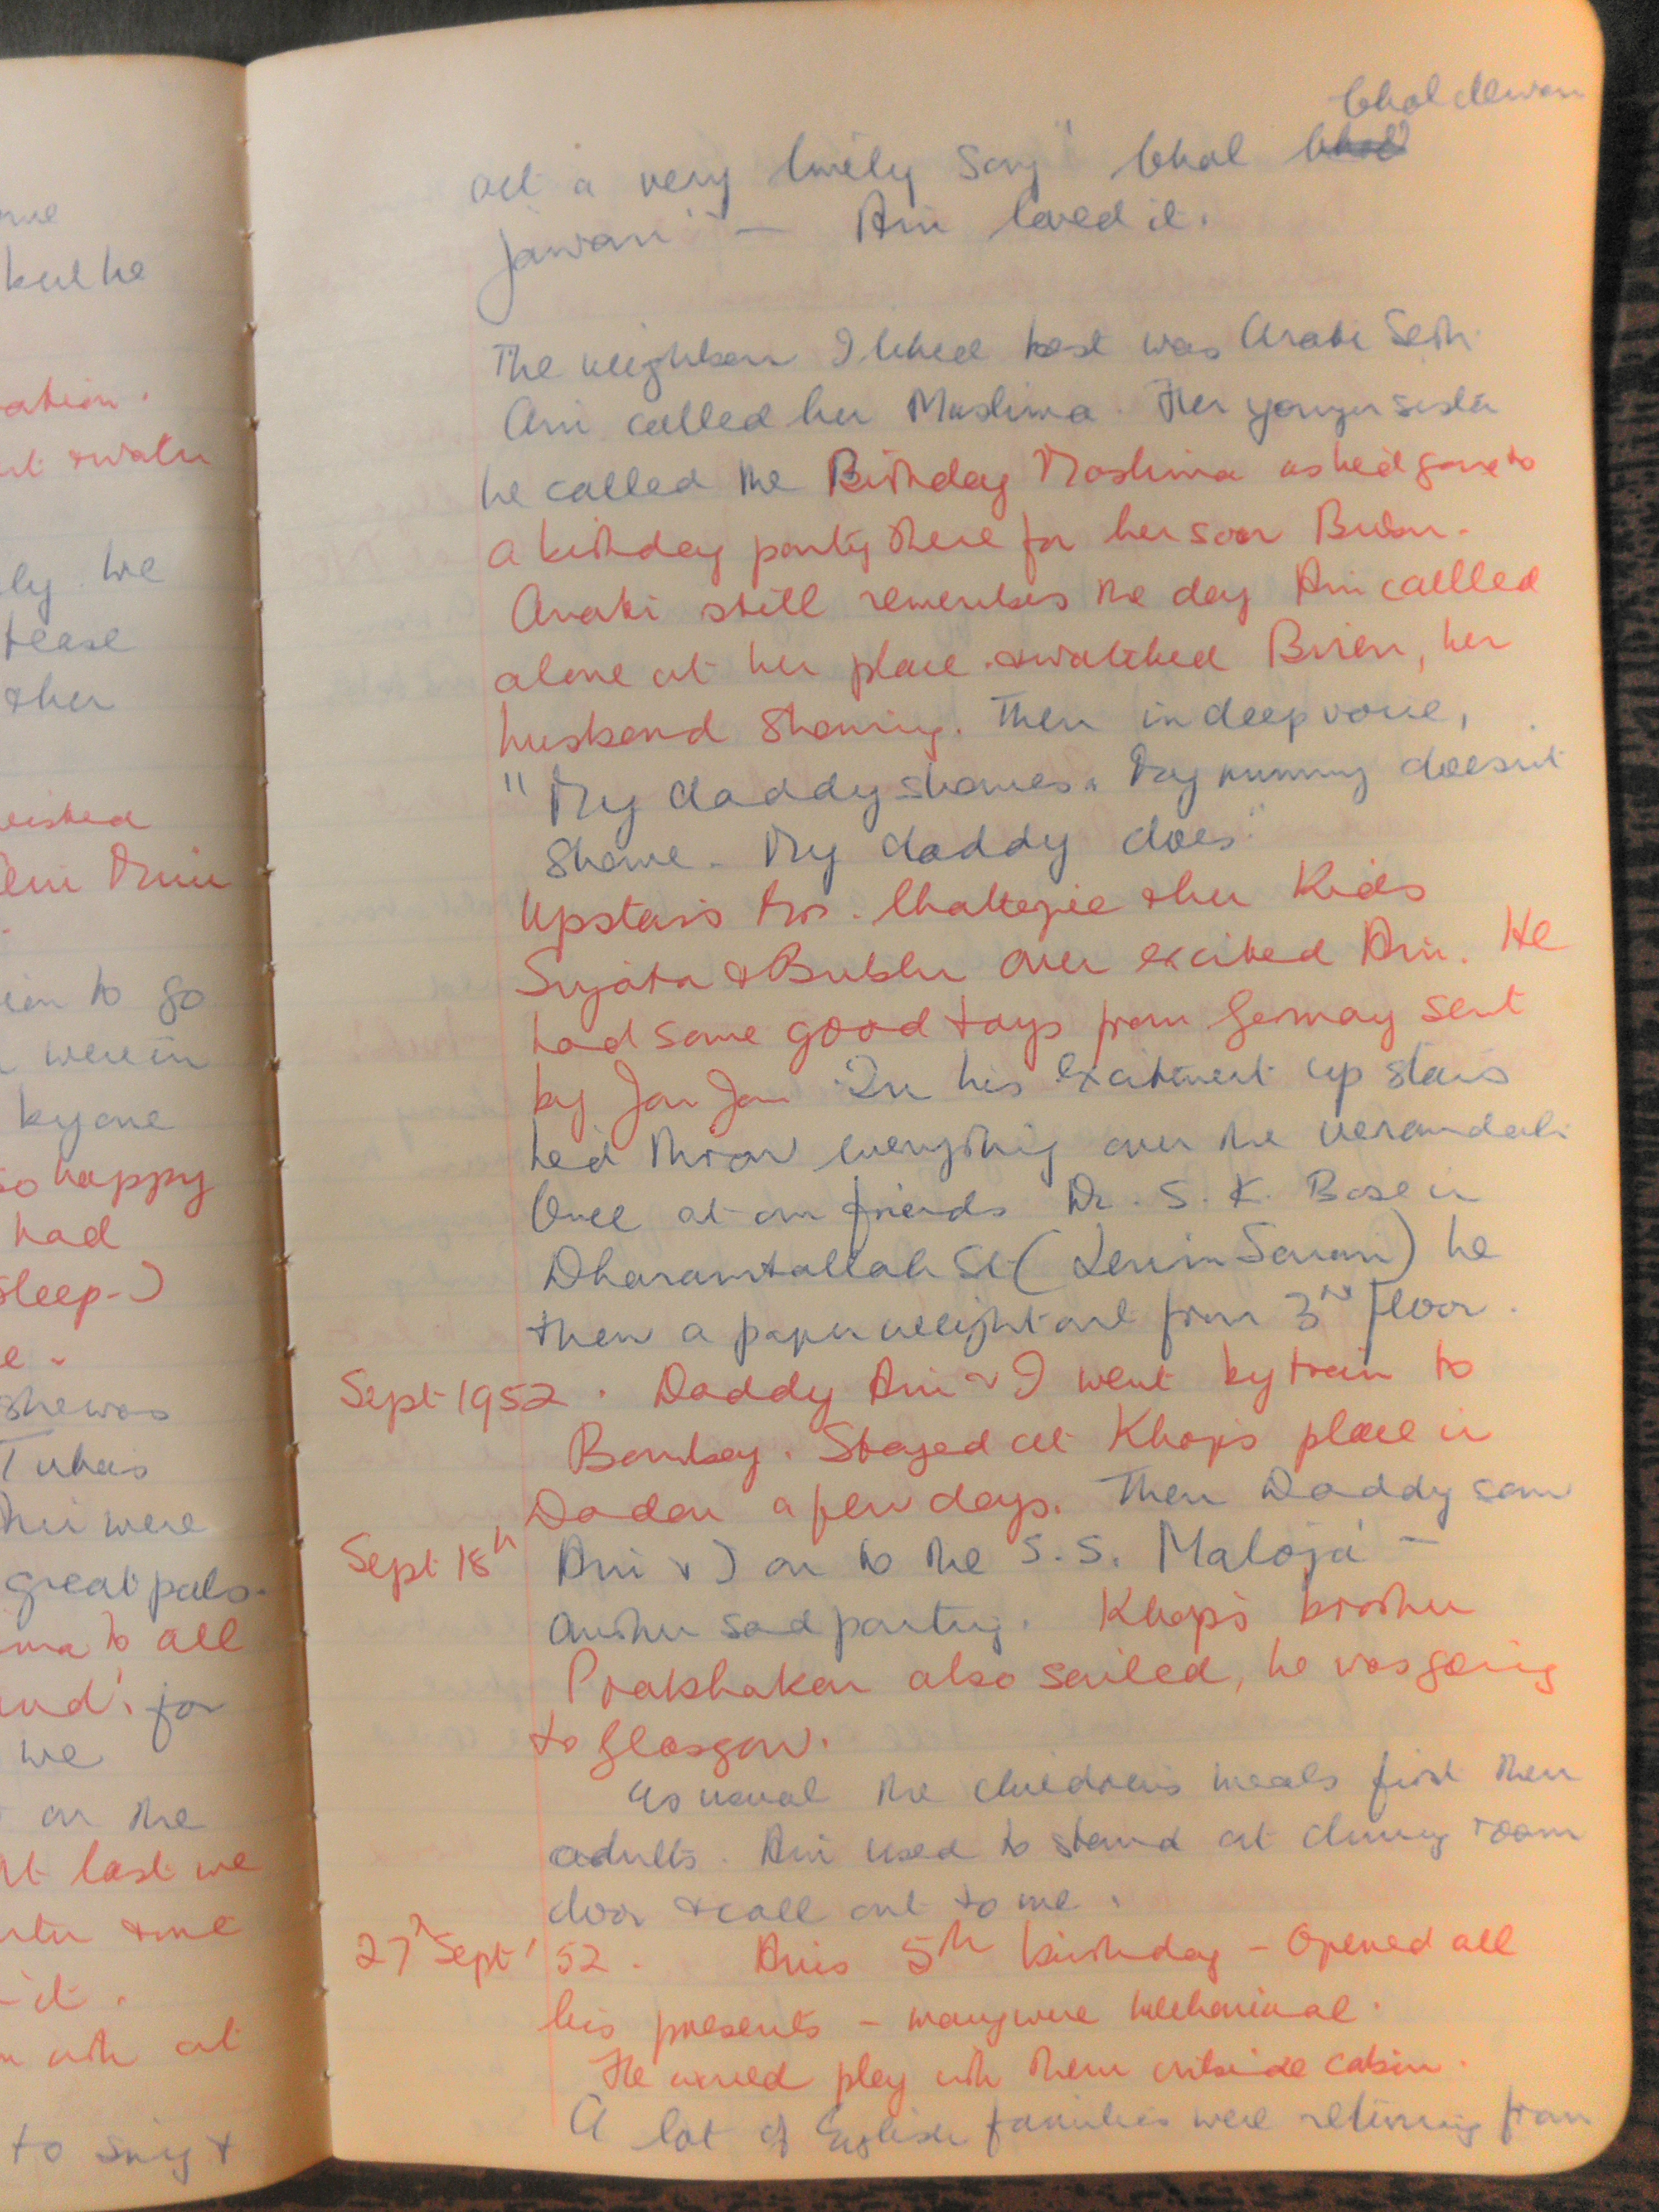 me
but he
ation.
ut & water
ly we
tease
& her
Ani Mini
ion to go
were in
by one
so happy
had
sleep-)
e.
she was
Tuka's
Ani were
great pals.
ma to all
and' for
we
on the
At last we
& me
- it.
with at
to sing &
Chal dewan
act a very lovely song "Chal
jawan" — Ani loved it.
The neighbour I liked best was Arati Seth.
Ani called her Mashima. Her younger sister
he called the Birthday Mashima as he'd gone to
a birthday party there for her son Bubu.
Arati still remembers the day Ani callled
alone at her place & watched Biren, her
husband shaving. Then in deep voice,
"My daddy shaves. My mummy doesn't
shave. My daddy does."
Upstairs Mrs. Chatterjee & her Kids
Sujata & Bublu over excited Ani. He
had some good toys from Germay sent
by Jan Jan. In his excitment up stairs
he'd throw everything over the verandah.
Once at our friends Dr. S. K. Bose in
Dharamtallah St (Lenin Sarani) he
threw a paper weight out from 3rd floor.
Sept 1952. Daddy Ani & I went by train to
Bombay. Stayed at Khop's place in
Dadar a few days. Then Daddy saw
Sept 18th Ani & I on to the S.S. Maloja –
another sad parting. Khop's brother
Prabhakar also sailed, he was going
to Glasgow.
As usual the children's meals first then
adults. Ani used to stand at dining room
door & call out to me.
27th Sept '52. Ani's 5th birthday – Opened all
his presents – many were mechanical.
He would play with them outside cabin.
A lot of English families were returning from